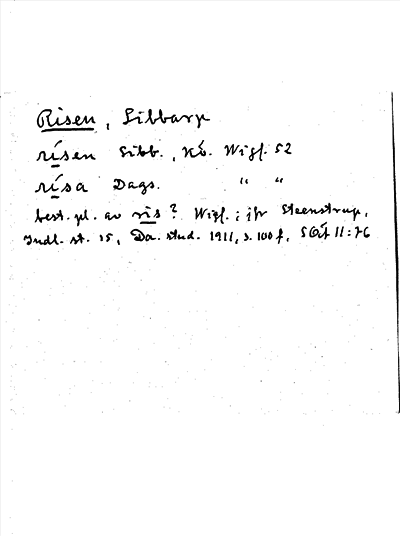 Risen, Sibbarp
rísen Sibb., Kö. Wigf. 52
rísa Dags. " "
best. pl. av ris? Wigf.; jfr Steenstrup,
Indl. st. 15, Da. stud. 1911, s. 100 f, SOÅ 11:76